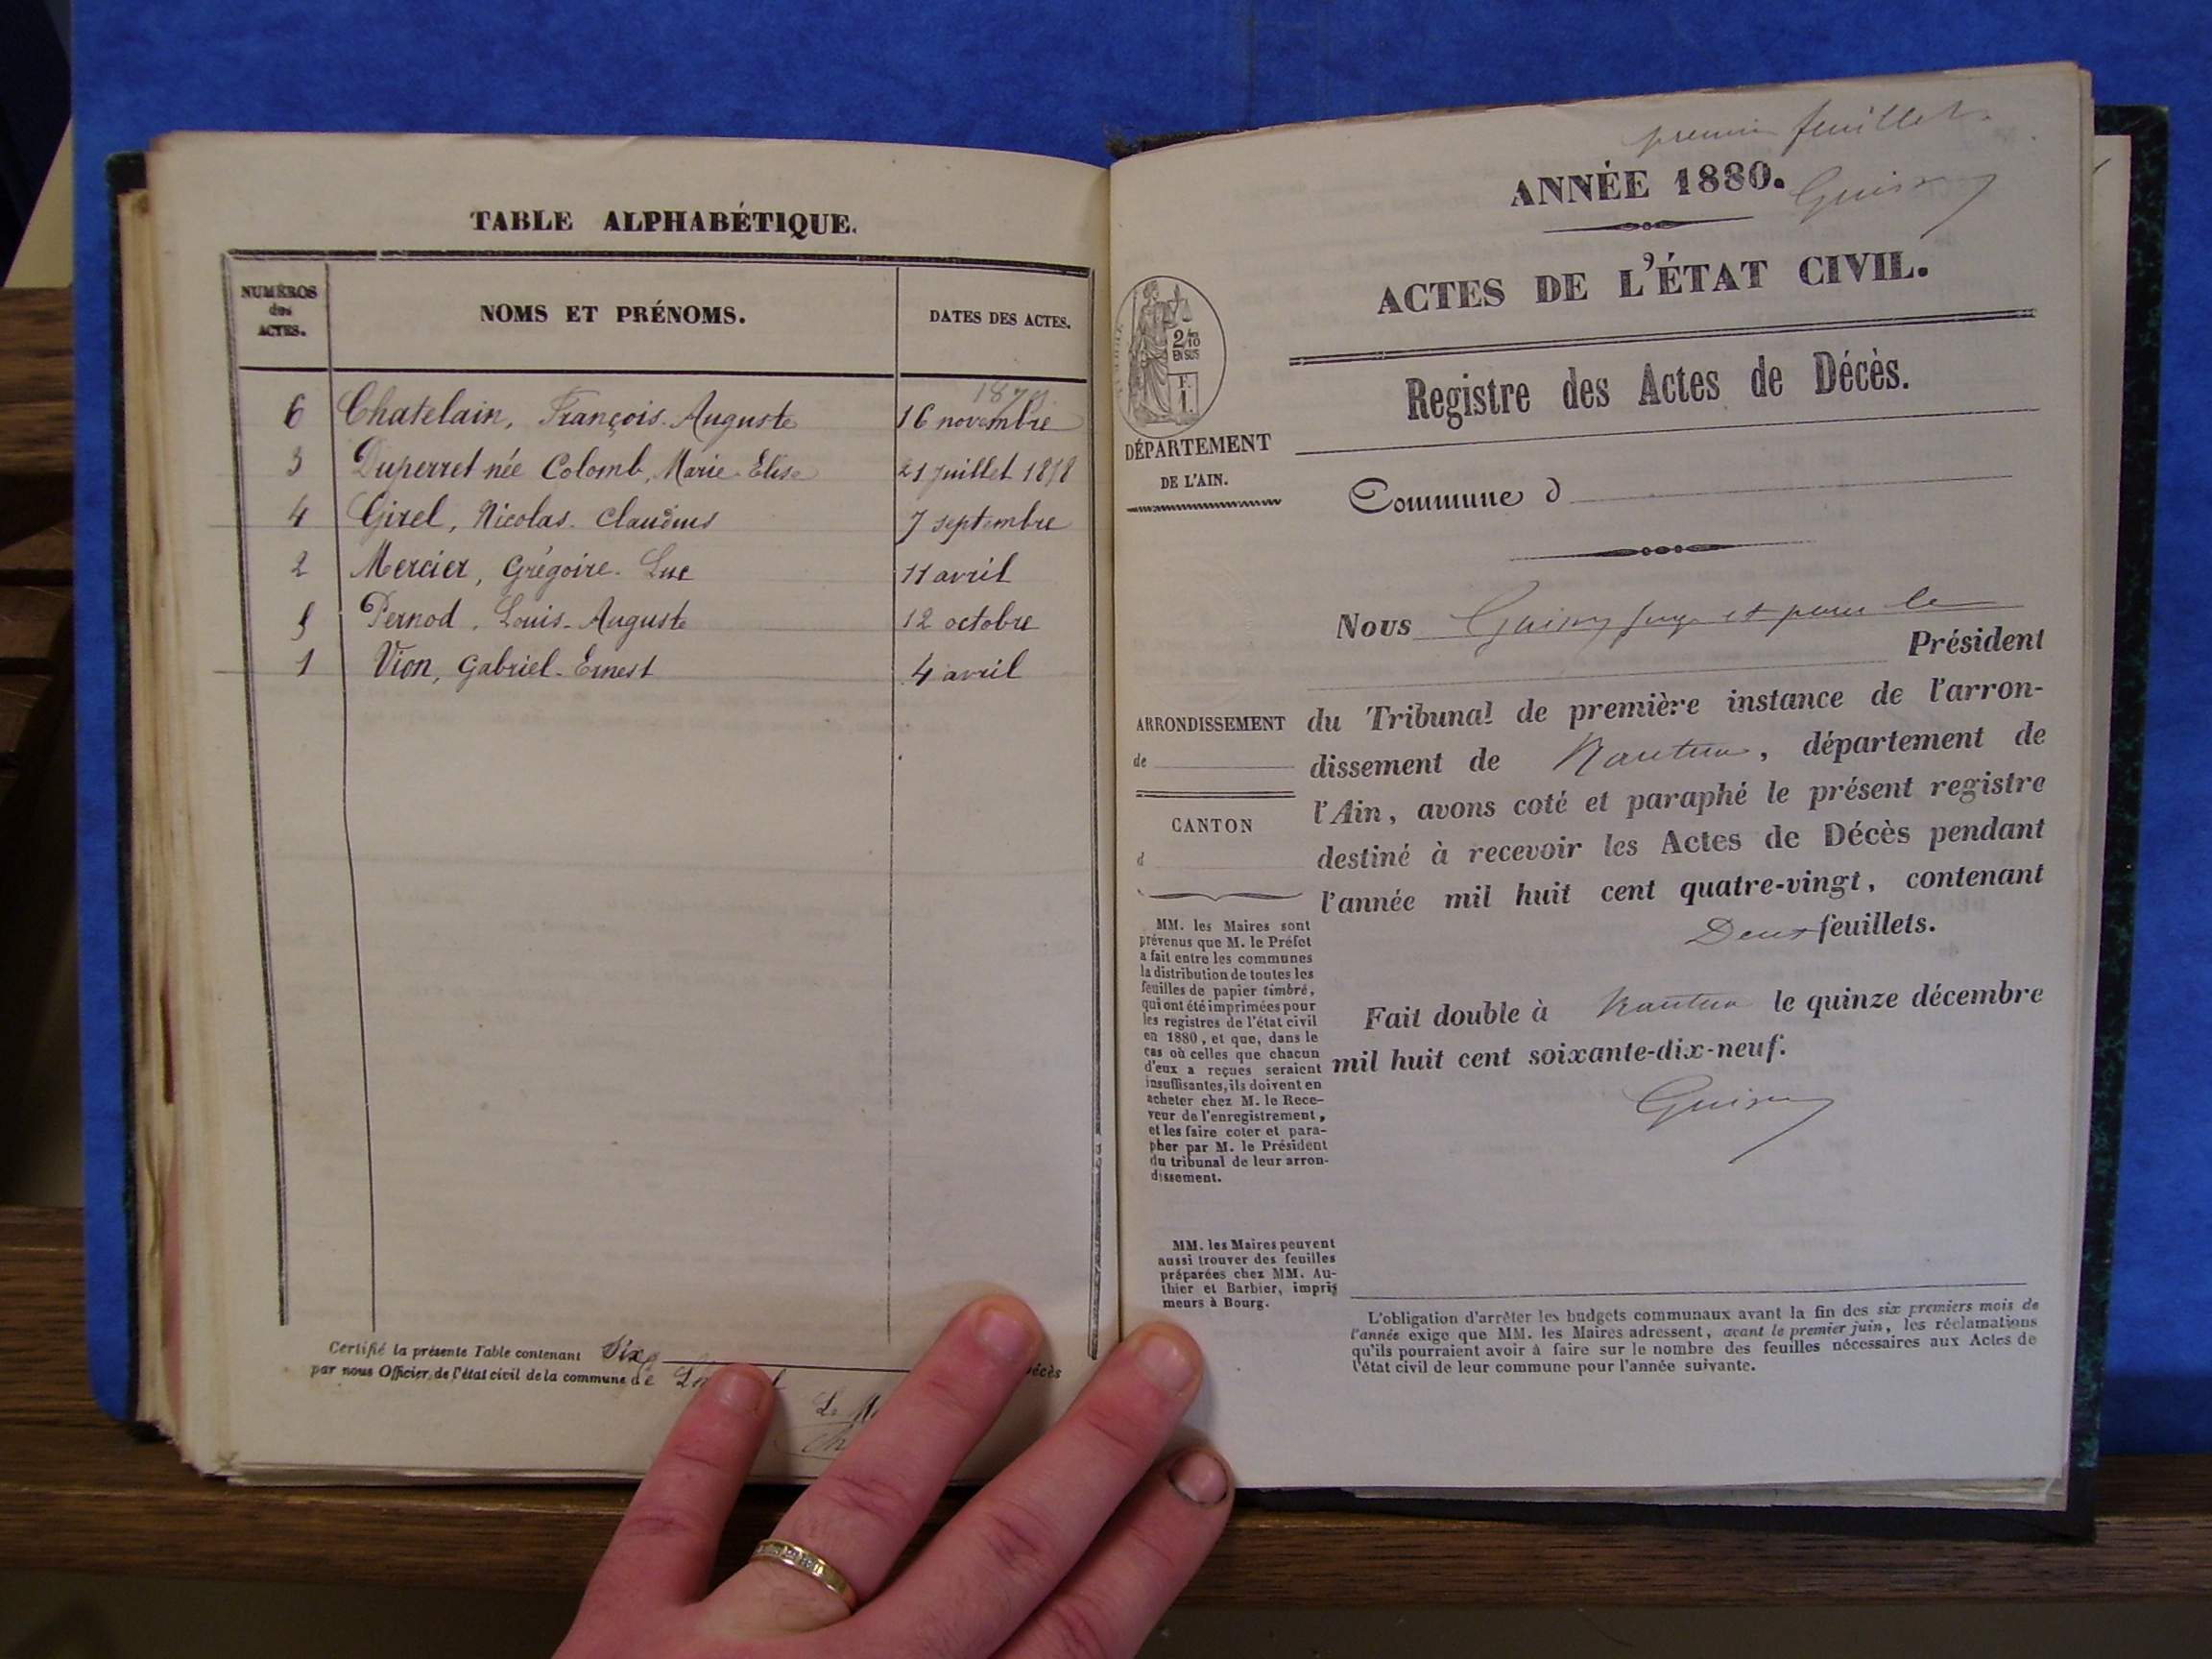 TABLE ALPHABÉTIQUE.
NUMÉROS
des
ACTES.
NOMS ET PRÉNOMS.
DATES DES ACTES.
6 Chatelain, François-Auguste 16 novembre
3 Duperret née Colomb, Marie-Elise 21 juillet 1878
4 Girel, Nicolas-Claudius 7 septembre
2 Mercier, Grégoire-Luc 11 avril
5 Pernod, Louis-Auguste 12 octobre
1 Vion, Gabriel-Ernest 4 avril
Certifié la présente Table contenant Six
par nous Officier de l'état civil de la commune de
Décès
premier feuillet.
ANNÉE 1880.
ACTES DE L'ÉTAT CIVIL.
2/10
EN SUS
F.
1.
Registre des Actes de Décès.
DÉPARTEMENT
DE L'AIN.
Commune d
Nous juge et pour le
Président
du Tribunal de première instance de l'arron-
dissement de Nantua, département de
l'Ain, avons coté et paraphé le présent registre
destiné à recevoir les Actes de Décès pendant
l'année mil huit cent quatre-vingt, contenant
Deux feuillets.
Fait double à Nantua le quinze décembre
mil huit cent soixante-dix-neuf.
ARRONDISSEMENT
de
CANTON
d
MM. les Maires sont
prévenus que M. le Préfet
a fait entre les communes
la distribution de toutes les
feuilles de papier timbré,
qui ont été imprimées pour
les registres de l'état civil
en 1880, et que, dans le
cas où celles que chacun
d'eux a reçues seraient
insuffisantes, ils doivent en
acheter chez M. le Rece-
veur de l'enregistrement,
et les faire coter et para-
pher par M. le Président
du tribunal de leur arron-
dissement.
MM. les Maires peuvent
aussi trouver des feuilles
préparées chez MM. Au-
thier et Barbier, impri-
meurs à Bourg.
L'obligation d'arrêter les budgets communaux avant la fin des six premiers mois de
l'année exige que MM. les Maires adressent, avant le premier juin, les réclamations
qu'ils pourraient avoir à faire sur le nombre des feuilles nécessaires aux Actes de
l'état civil de leur commune pour l'année suivante.